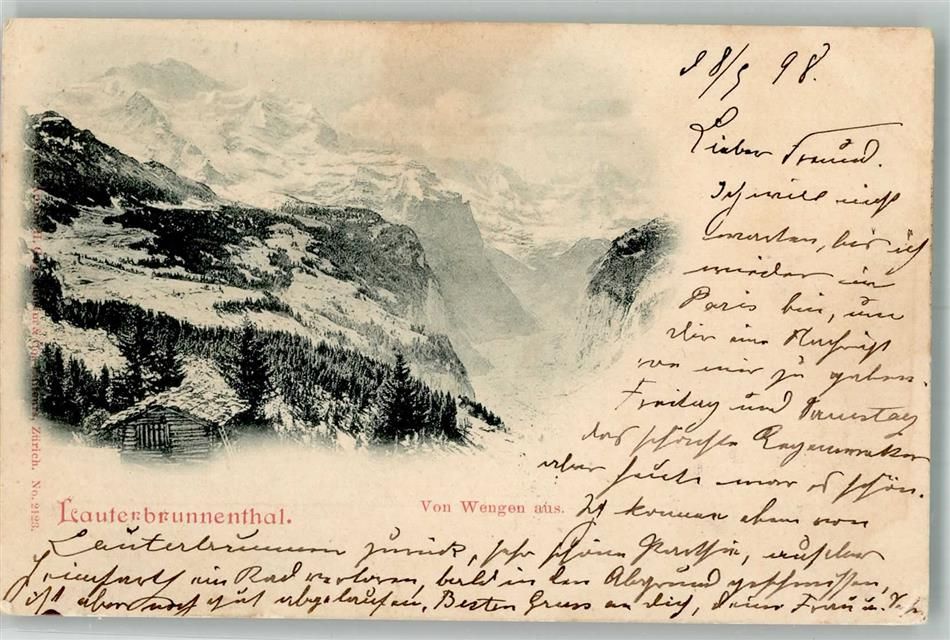 98.
Lieber Freund.
Ich will nicht
warten, bis ich
wieder in
Paris bin, um
dir eine Nachricht
von mir zu geben.
Freitag und Samstag
das schönste Regenwetter
aber heute war es schön.
Ich komme eben von
Lauterbrunnen zurück, sehr schöne Parthie, auf der
Heimfarth ein Rad verloren, bald in den Abgrund geschmissen,
ist aber noch gut abgelaufen. Besten Gruss an dich, deine Frau u.
Lauterbrunnenthal.
Von Wengen aus.
Zürich. No. 2123.